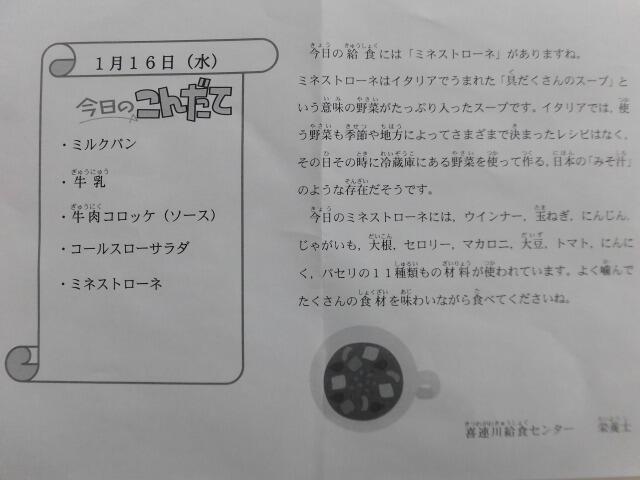 1月16日（水）
今日のこんだて
・ミルクパン
・牛乳
・牛肉コロッケ（ソース）
・コールスローサラダ
・ミネストローネ
今日の給食には「ミネストローネ」がありますね。
ミネストローネはイタリアでうまれた「具だくさんのスープ」と
いう意味の野菜がたっぷり入ったスープです。イタリアでは，使
う野菜も季節や地方によってさまざまで決まったレシピはなく，
その日その時に冷蔵庫にある野菜を使って作る，日本の「みそ汁」
のような存在だそうです。
今日のミネストローネには，ウインナー，玉ねぎ，にんじん，
じゃがいも，大根，セロリー，マカロニ，大豆，トマト，にんに
く，パセリの11種類もの材料が使われています。よく噛んで
たくさんの食材を味わいながら食べてくださいね。
喜連川給食センター　栄養士